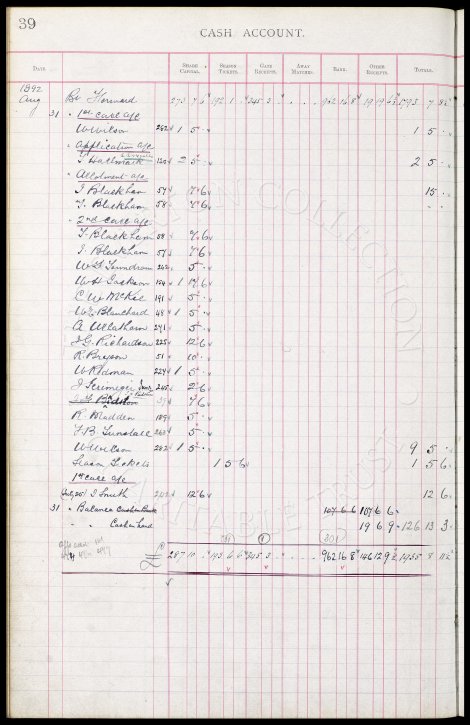 39
CASH ACCOUNT.
DATE. SHARE CAPITAL. SEASON TICKETS. GATE RECEIPTS. AWAY MATCHES. BANK. OTHER RECEIPTS. TOTALS.
1892
Aug Bt Forward 273 7 6 192 1 345 3 962 16 8 1793 7 8½
31 " 1st call a/c
W Wilson 262 1 5 1 5
" Application a/c
T Hallmark 120 2 5 2 5
" Allotment a/c
J Blackham 57 7 6 15
T. Blackham 58 7 6
" 2nd call a/c
T Blackham 58 7 6
J. Blackham 57 7 6
5
W H Jackson 154 1 17 6
C W McKee 191 5
W E Blanchard 48 1 5
A W Latham 241 5
J G Richardson 225 12 6
R. Bryson 51 10
W Redman 224 1 5
2 6
39 7 6
R. Madden 189 5
F B Tunstall 263 5
W Wilson 262 1 5 9 5
Season Tickets 1 5 6 1 5 6
1st call a/c
J Smith 202 12 6 12 6
31 " Balance Cash in Bank 107 6 6 107 6 6
" " Cash in hand 19 6 9 126 13 3
287 10 193 6 6 345 3 962 16 8 146 12 9½ 1935 8 11½
COLLECTION